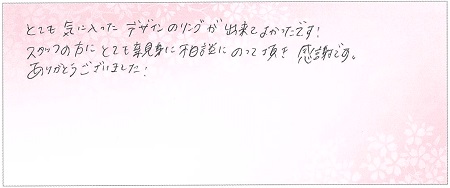 とても気に入ったデザインのリングが出来てよかったです!
スタッフの方にとても親身に相談にのって頂き感謝です。
ありがとうございました!